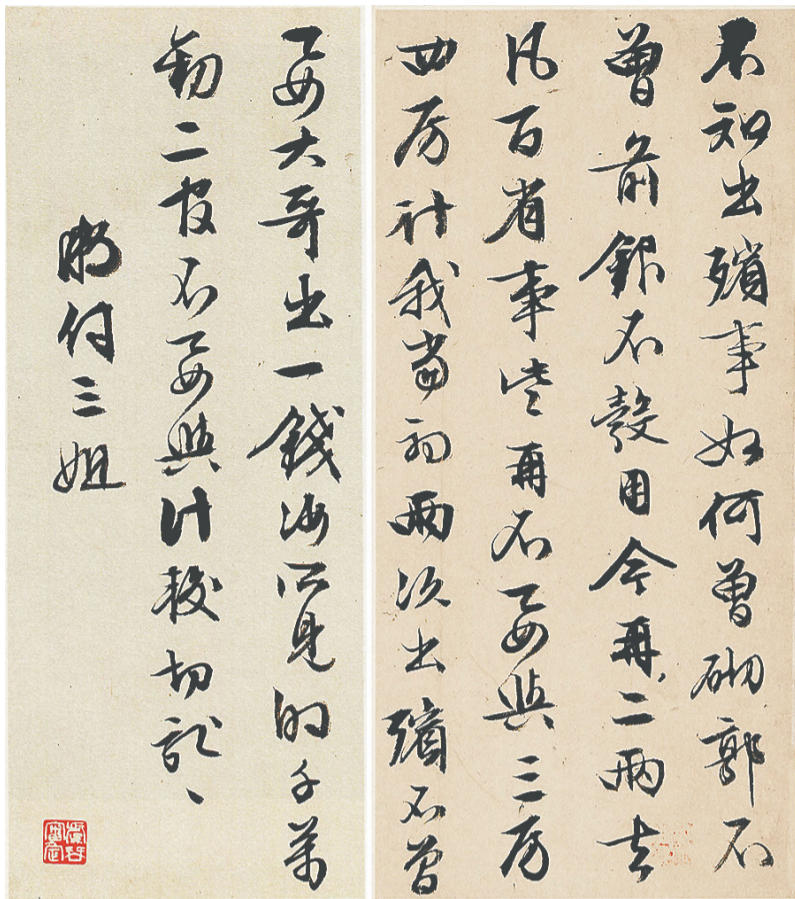 不知出殯事如何曾砌郭不
曾前銀不彀用今再二兩去
凡百省事些再不要與三房
四房計我當初兩次出殯不曾
要大哥出一錢汝所見的千萬
勸二官不要與計較切記、
明付三姐
虛齋審定